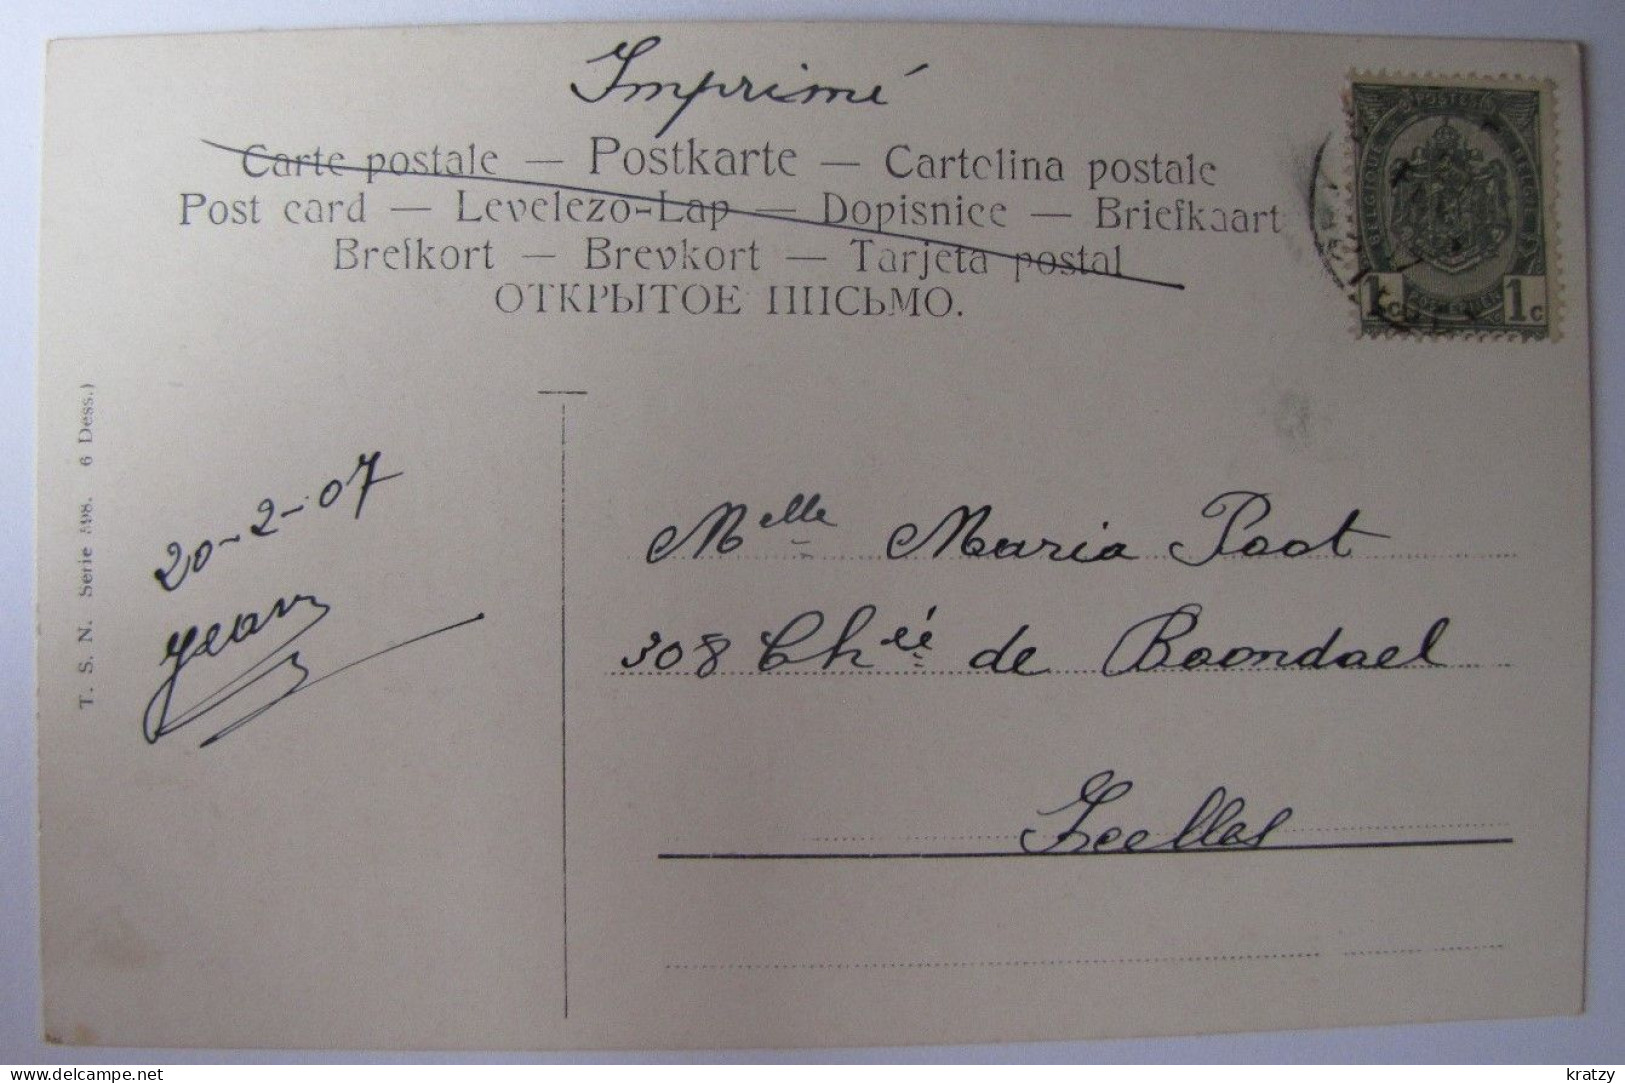 Imprimé
Carte postale — Postkarte — Cartolina postale
Post card — Levelezo-Lap — Dopisnice — Briefkaart
Brefkort — Brevkort — Tarjeta postal
ОТКРЫТОЕ ПИСЬМО.
POSTES
BELGIQUE
1c 1c
T. S. N. Serie 898. 6 Dess.)
20-2-07
Jean
Melle Maria Poot
308 Chée de Boondael
Ixelles
www.delcampe.net
kratzy